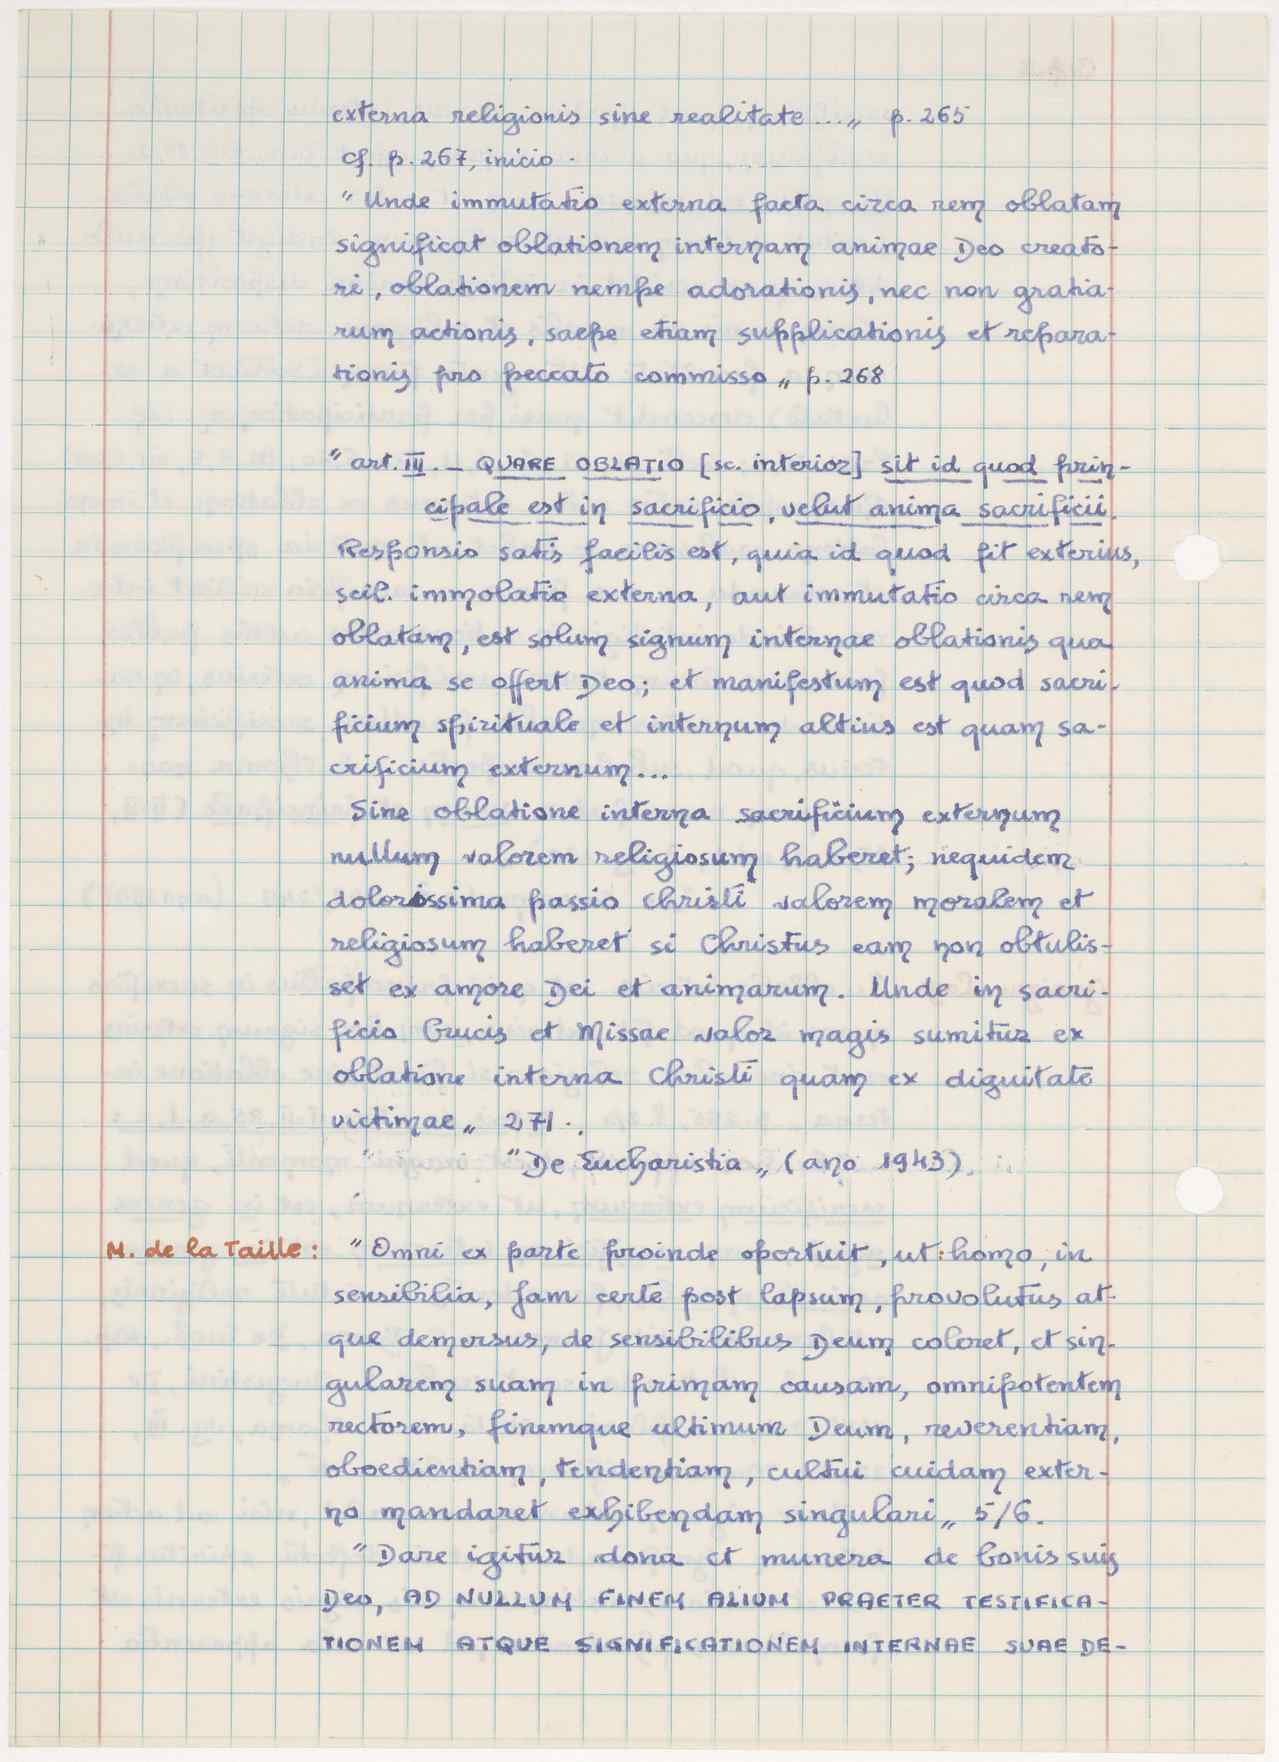 externa religionis sine realitate...„ p. 265
cf. p. 267, inicio.
"Unde immutatio externa facta circa rem oblatam
significat oblationem internam animae Deo creato-
ri, oblationem nempe adorationis, nec non gratia-
rum actionis, saepe etiam supplicationis et repara-
tionis pro peccato commisso„ p. 268
"art. III. — QUARE OBLATIO [sc. interior] sit id quod prin-
cipale est in sacrificio, velut anima sacrificii.
Responsio satis facilis est, quia id quod fit exterius,
scil. immolatio externa, aut immutatio circa rem
oblatam, est solum signum internae oblationis qua
anima se offert Deo; et manifestum est quod sacri-
ficium spirituale et internum altius est quam sa-
crificium externum...
Sine oblatione interna sacrificium externum
nullum valorem religiosum haberet; nequidem
dolorissima passio Christi valorem moralem et
religiosum haberet si Christus eam non obtulis-
set ex amore Dei et animarum. Unde in sacri-
ficio Crucis et Missae valor magis sumitur ex
oblatione interna Christi quam ex dignitate
victimae„ 271.
" "De Eucharistia„ (año 1943).
M. de la Taille: "Omni ex parte proinde oportuit, ut homo, in
sensibilia, jam certe post lapsum, provolutus at-
que demersus, de sensibilibus Deum coleret, et sin-
gularem suam in primam causam, omnipotentem
rectorem, finemque ultimum Deum, reverentiam,
oboedientiam, tendentiam, cultui cuidam exter-
no mandaret exhibendam singulari„ 5/6.
"Dare igitur dona et munera de bonis suis
Deo, AD NULLUM FINEM ALIUM PRAETER TESTIFICA-
TIONEM ATQUE SIGNIFICATIONEM INTERNAE SUAE DE-